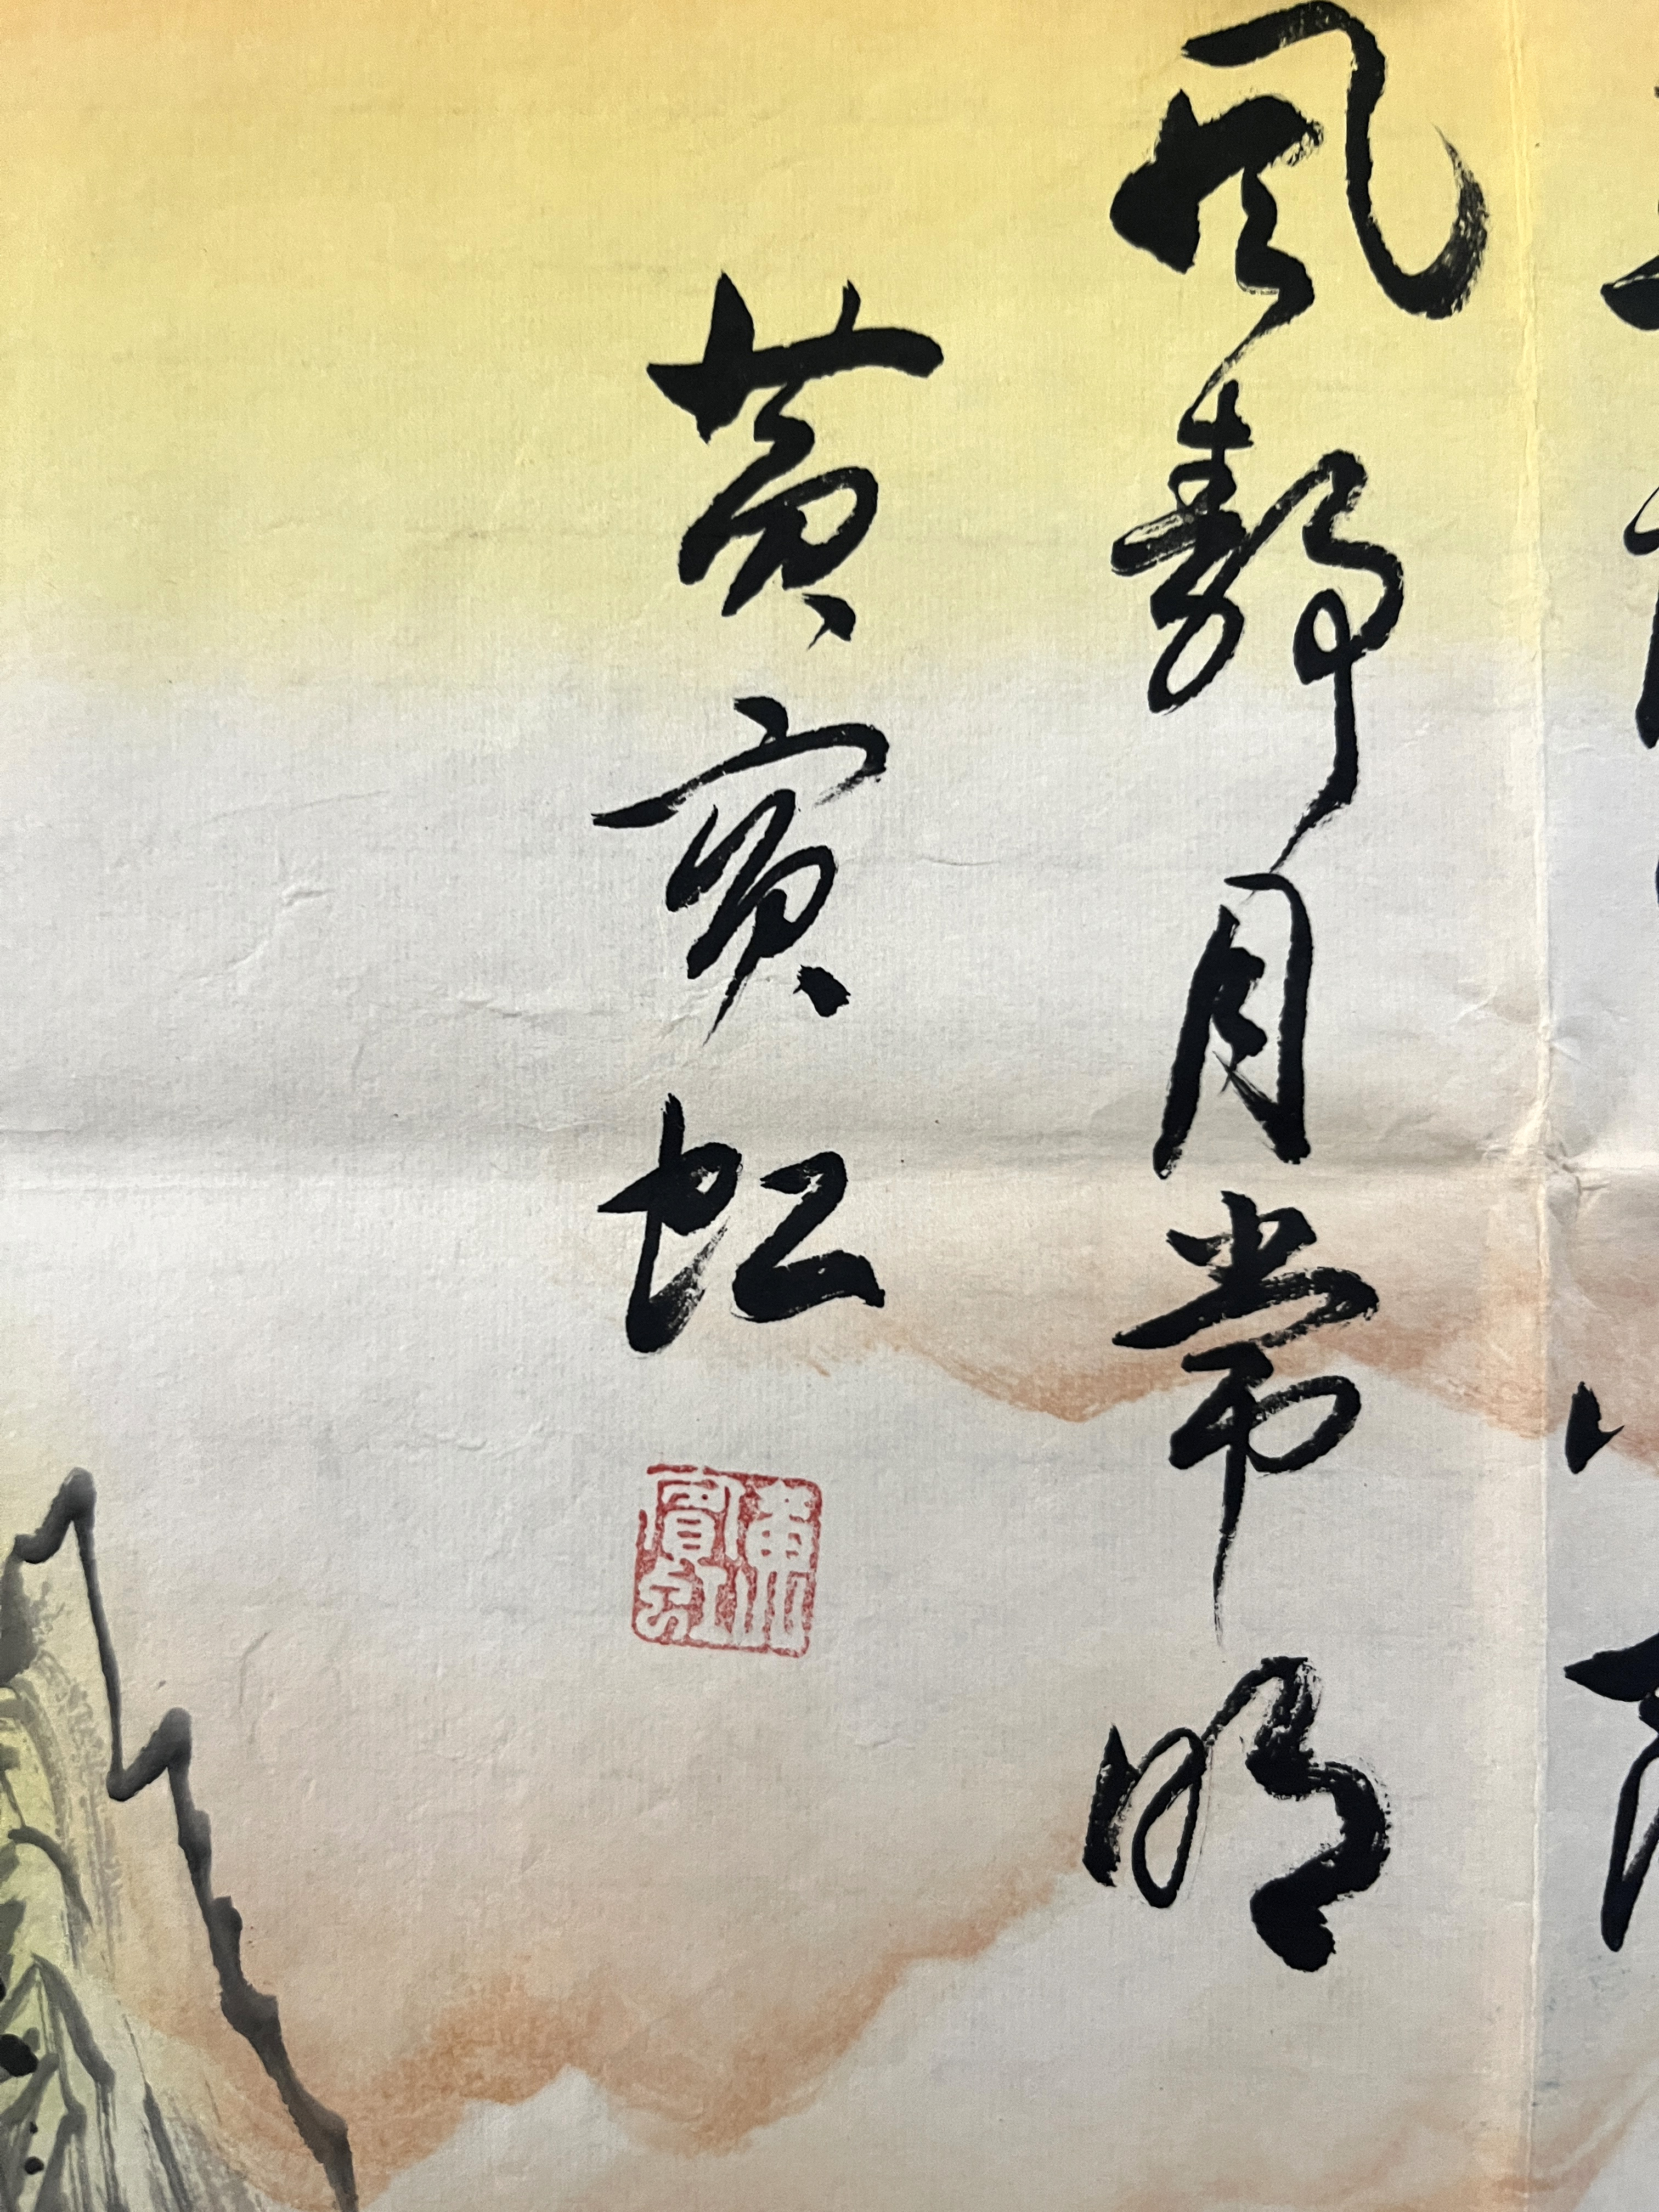 風靜月常明
黄賓虹
黄賓虹